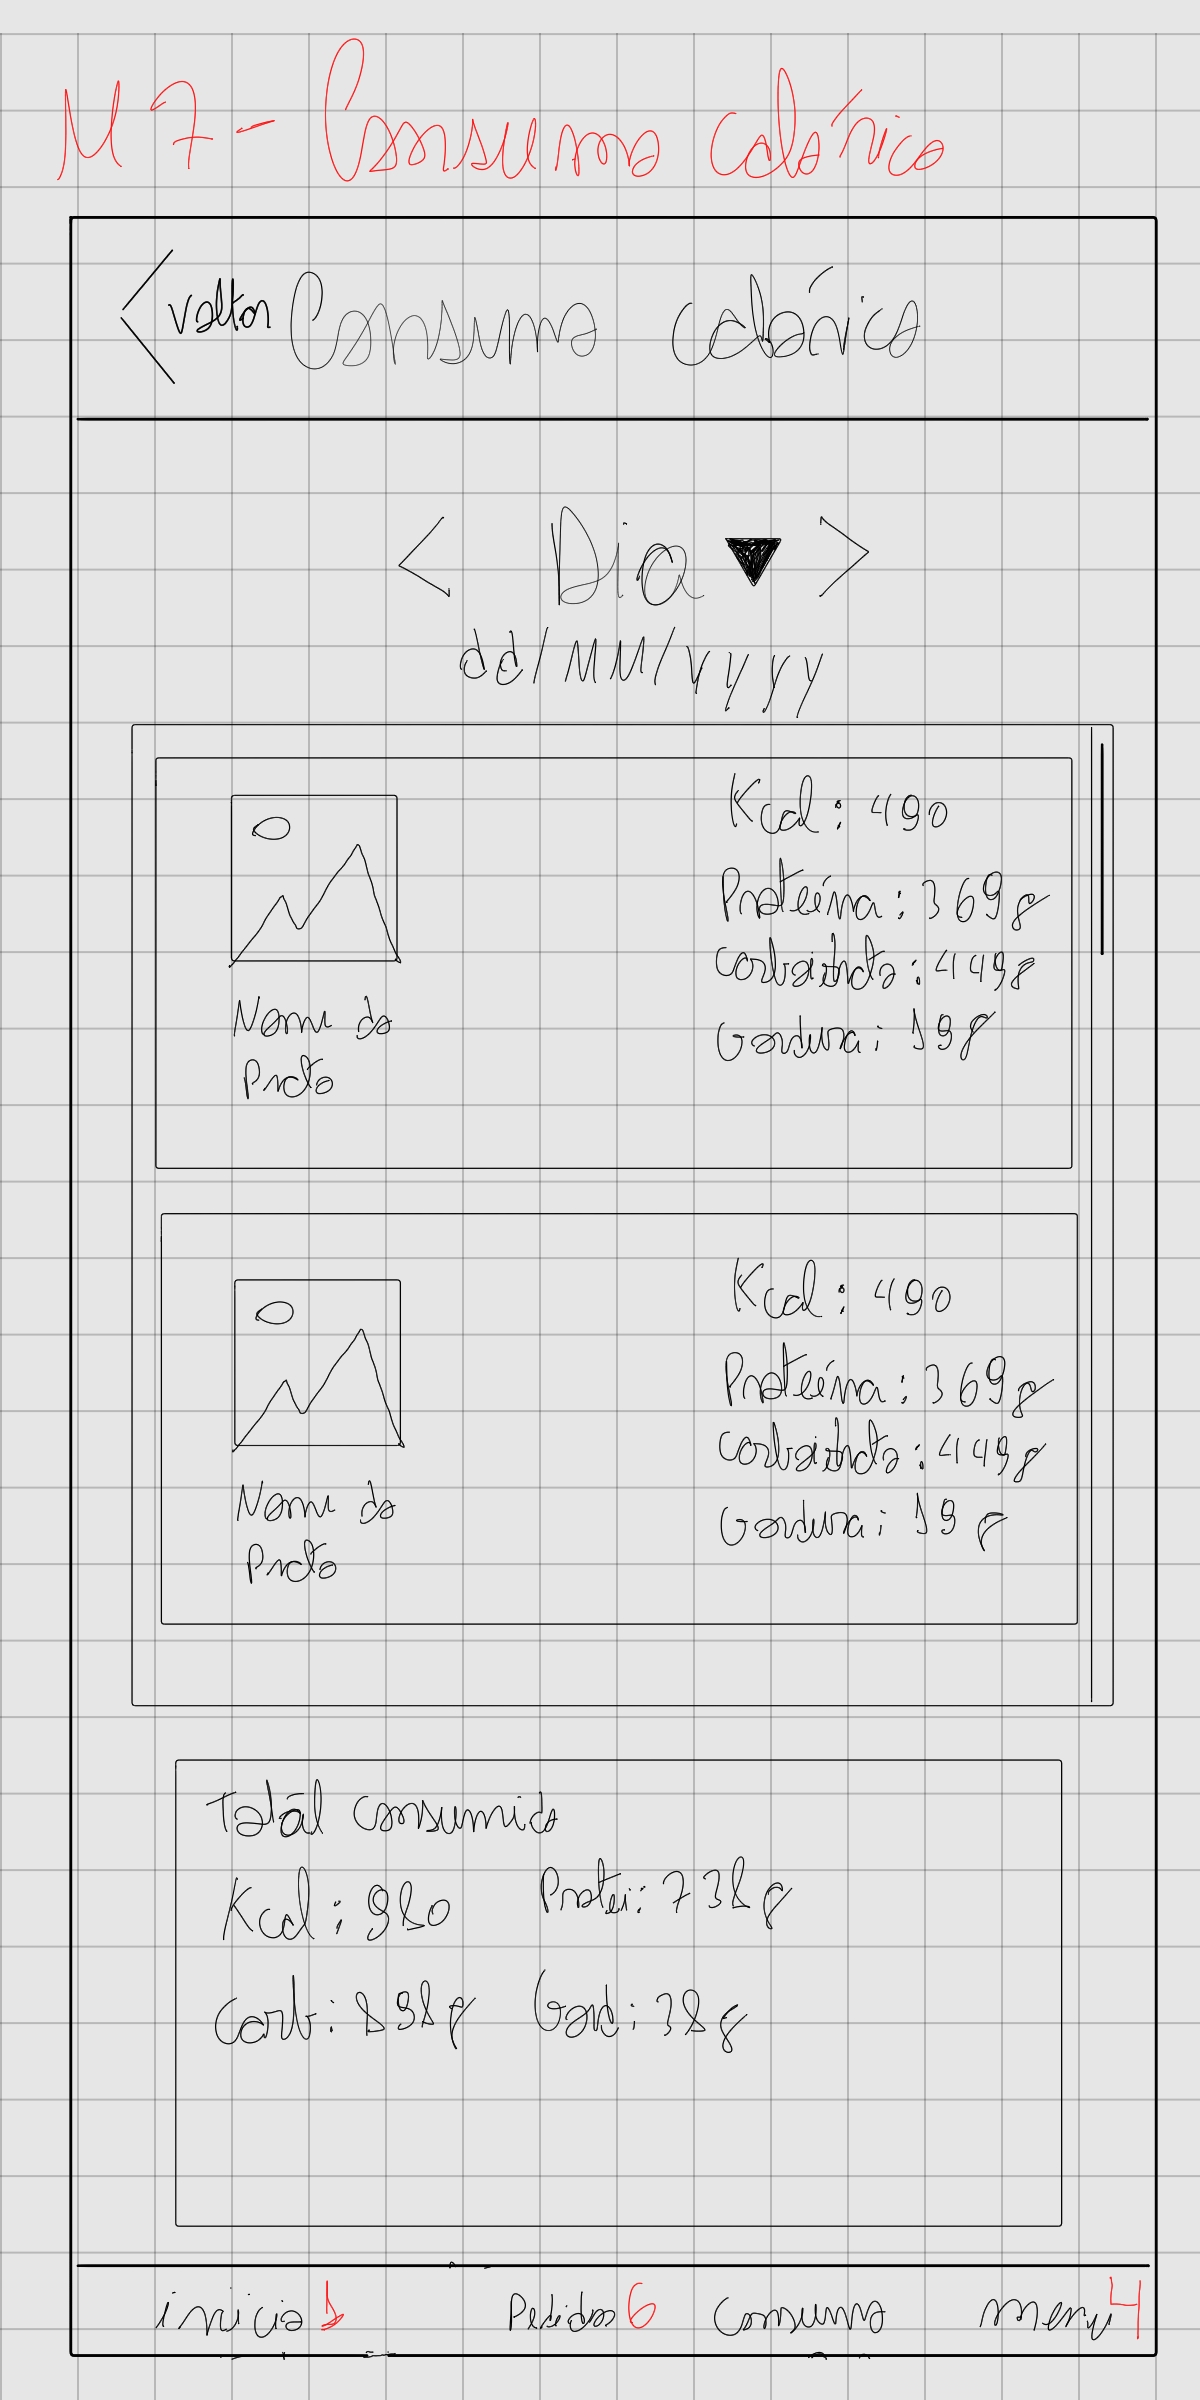 M7 - Consumo calórico
voltar Consumo calórico
< Dia ▼ >
dd/MM/yyyy
Kcal: 490
Proteína: 369g
Carboidrato: 449g
Gordura: 19g
Nome do
Prato
Kcal: 490
Proteína: 369g
Carboidrato: 449g
Gordura: 19g
Nome do
Prato
Total consumido
Kcal: 980 Protei: 738g
Carb: 898g Gord: 38g
inicio 1 Pedidos 6 Consumo menu 4